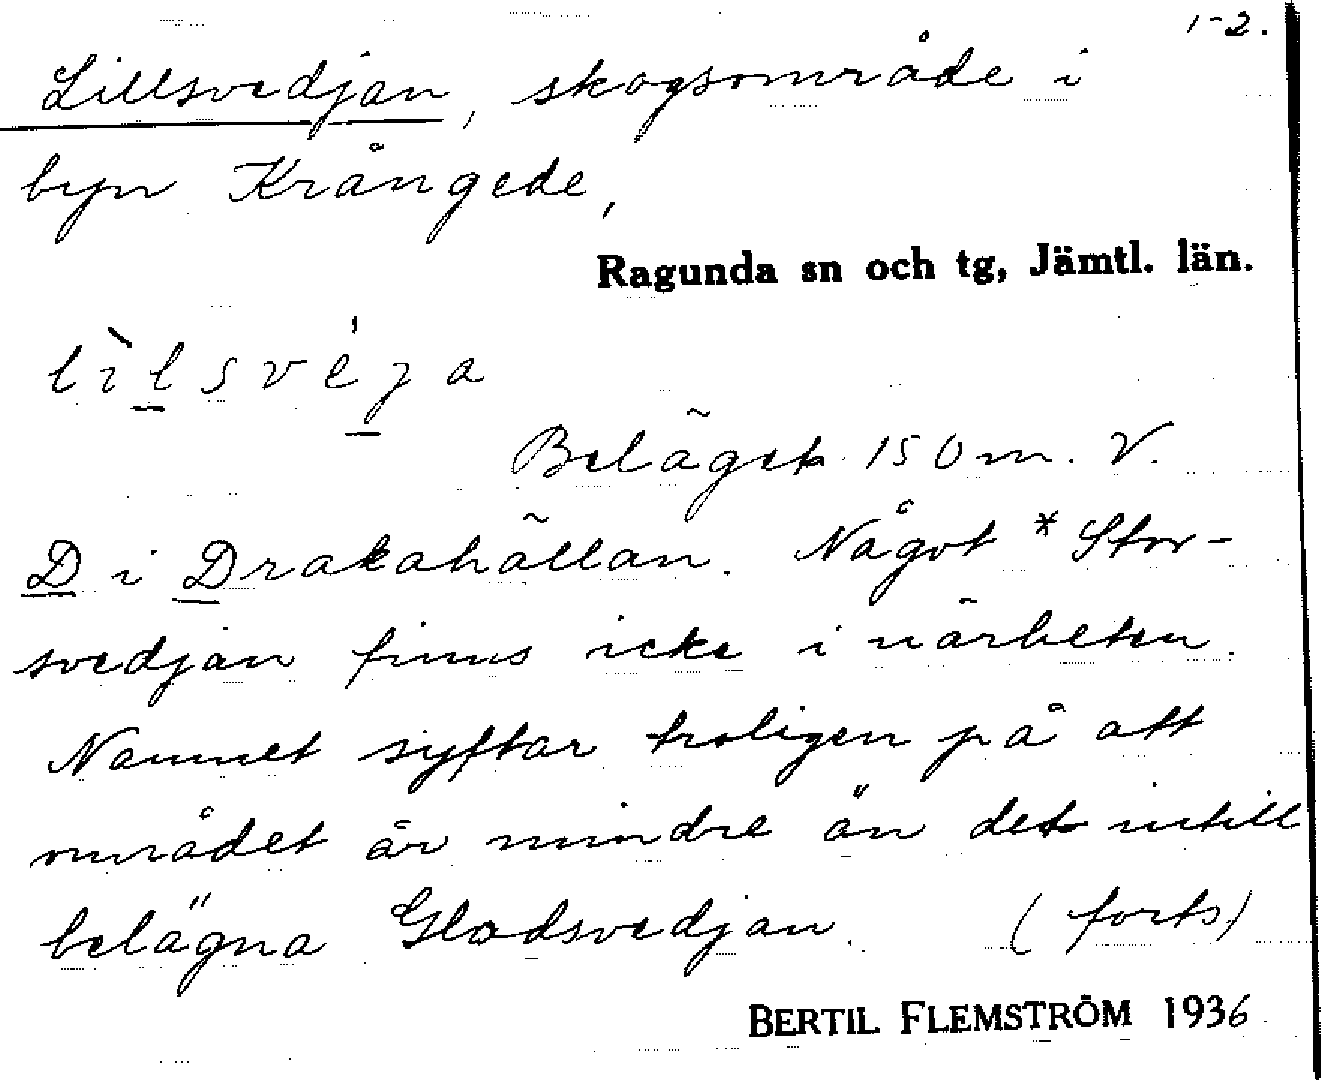 1-2.
Lillsvedjan, skogsområde i
byn Krångede,
Ragunda sn och tg, Jämtl. län.
lìlsvéja
Beläget 150 m. V.
D i Drakahällan. Något * Stor-
svedjan finns icke i närheten.
Namnet syftar troligen på att
området är mindre än det intill
belägna Glodsvedjan. (forts)
BERTIL FLEMSTRÖM 1936